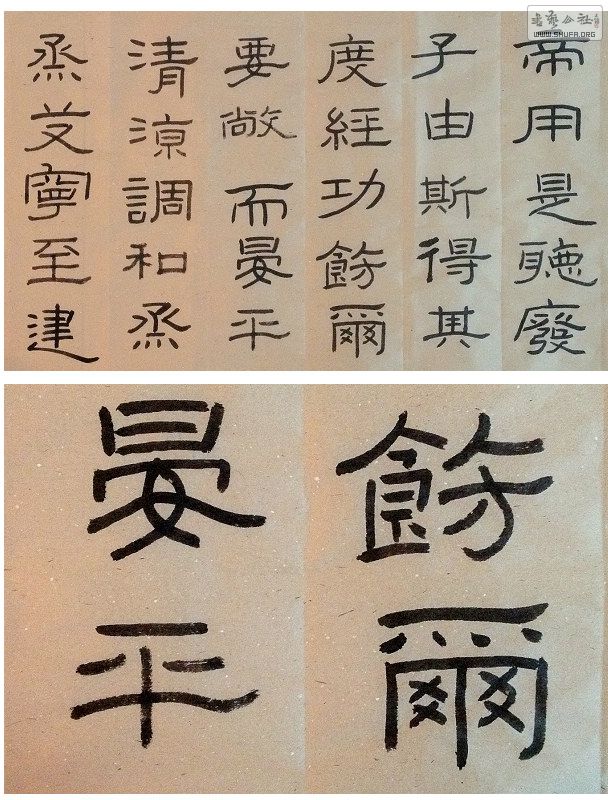 書藝公社
WWW.SHUFA.ORG
帝用是聽廢
子由斯得其
度經功飭爾
要敞而晏平
清涼調和烝
烝艾寧至建
飭爾
晏平